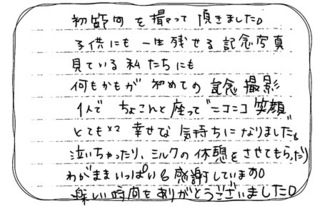 初節句を撮って頂きました。
子供にも一生残せる記念写真
見ている私たちにも
何もかもが初めての記念撮影
1人でちょこんと座って"ニコニコ笑顔"
とても××幸せな気持ちになりました。
泣いちゃったり、ミルクの休憩をさせてもらったり
わがままいっぱいも感謝しています。
楽しい時間をありがとうございました。